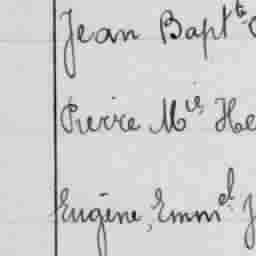 Jean Bapt^te
Pierre M^ie He
Eugène, Emm^el J